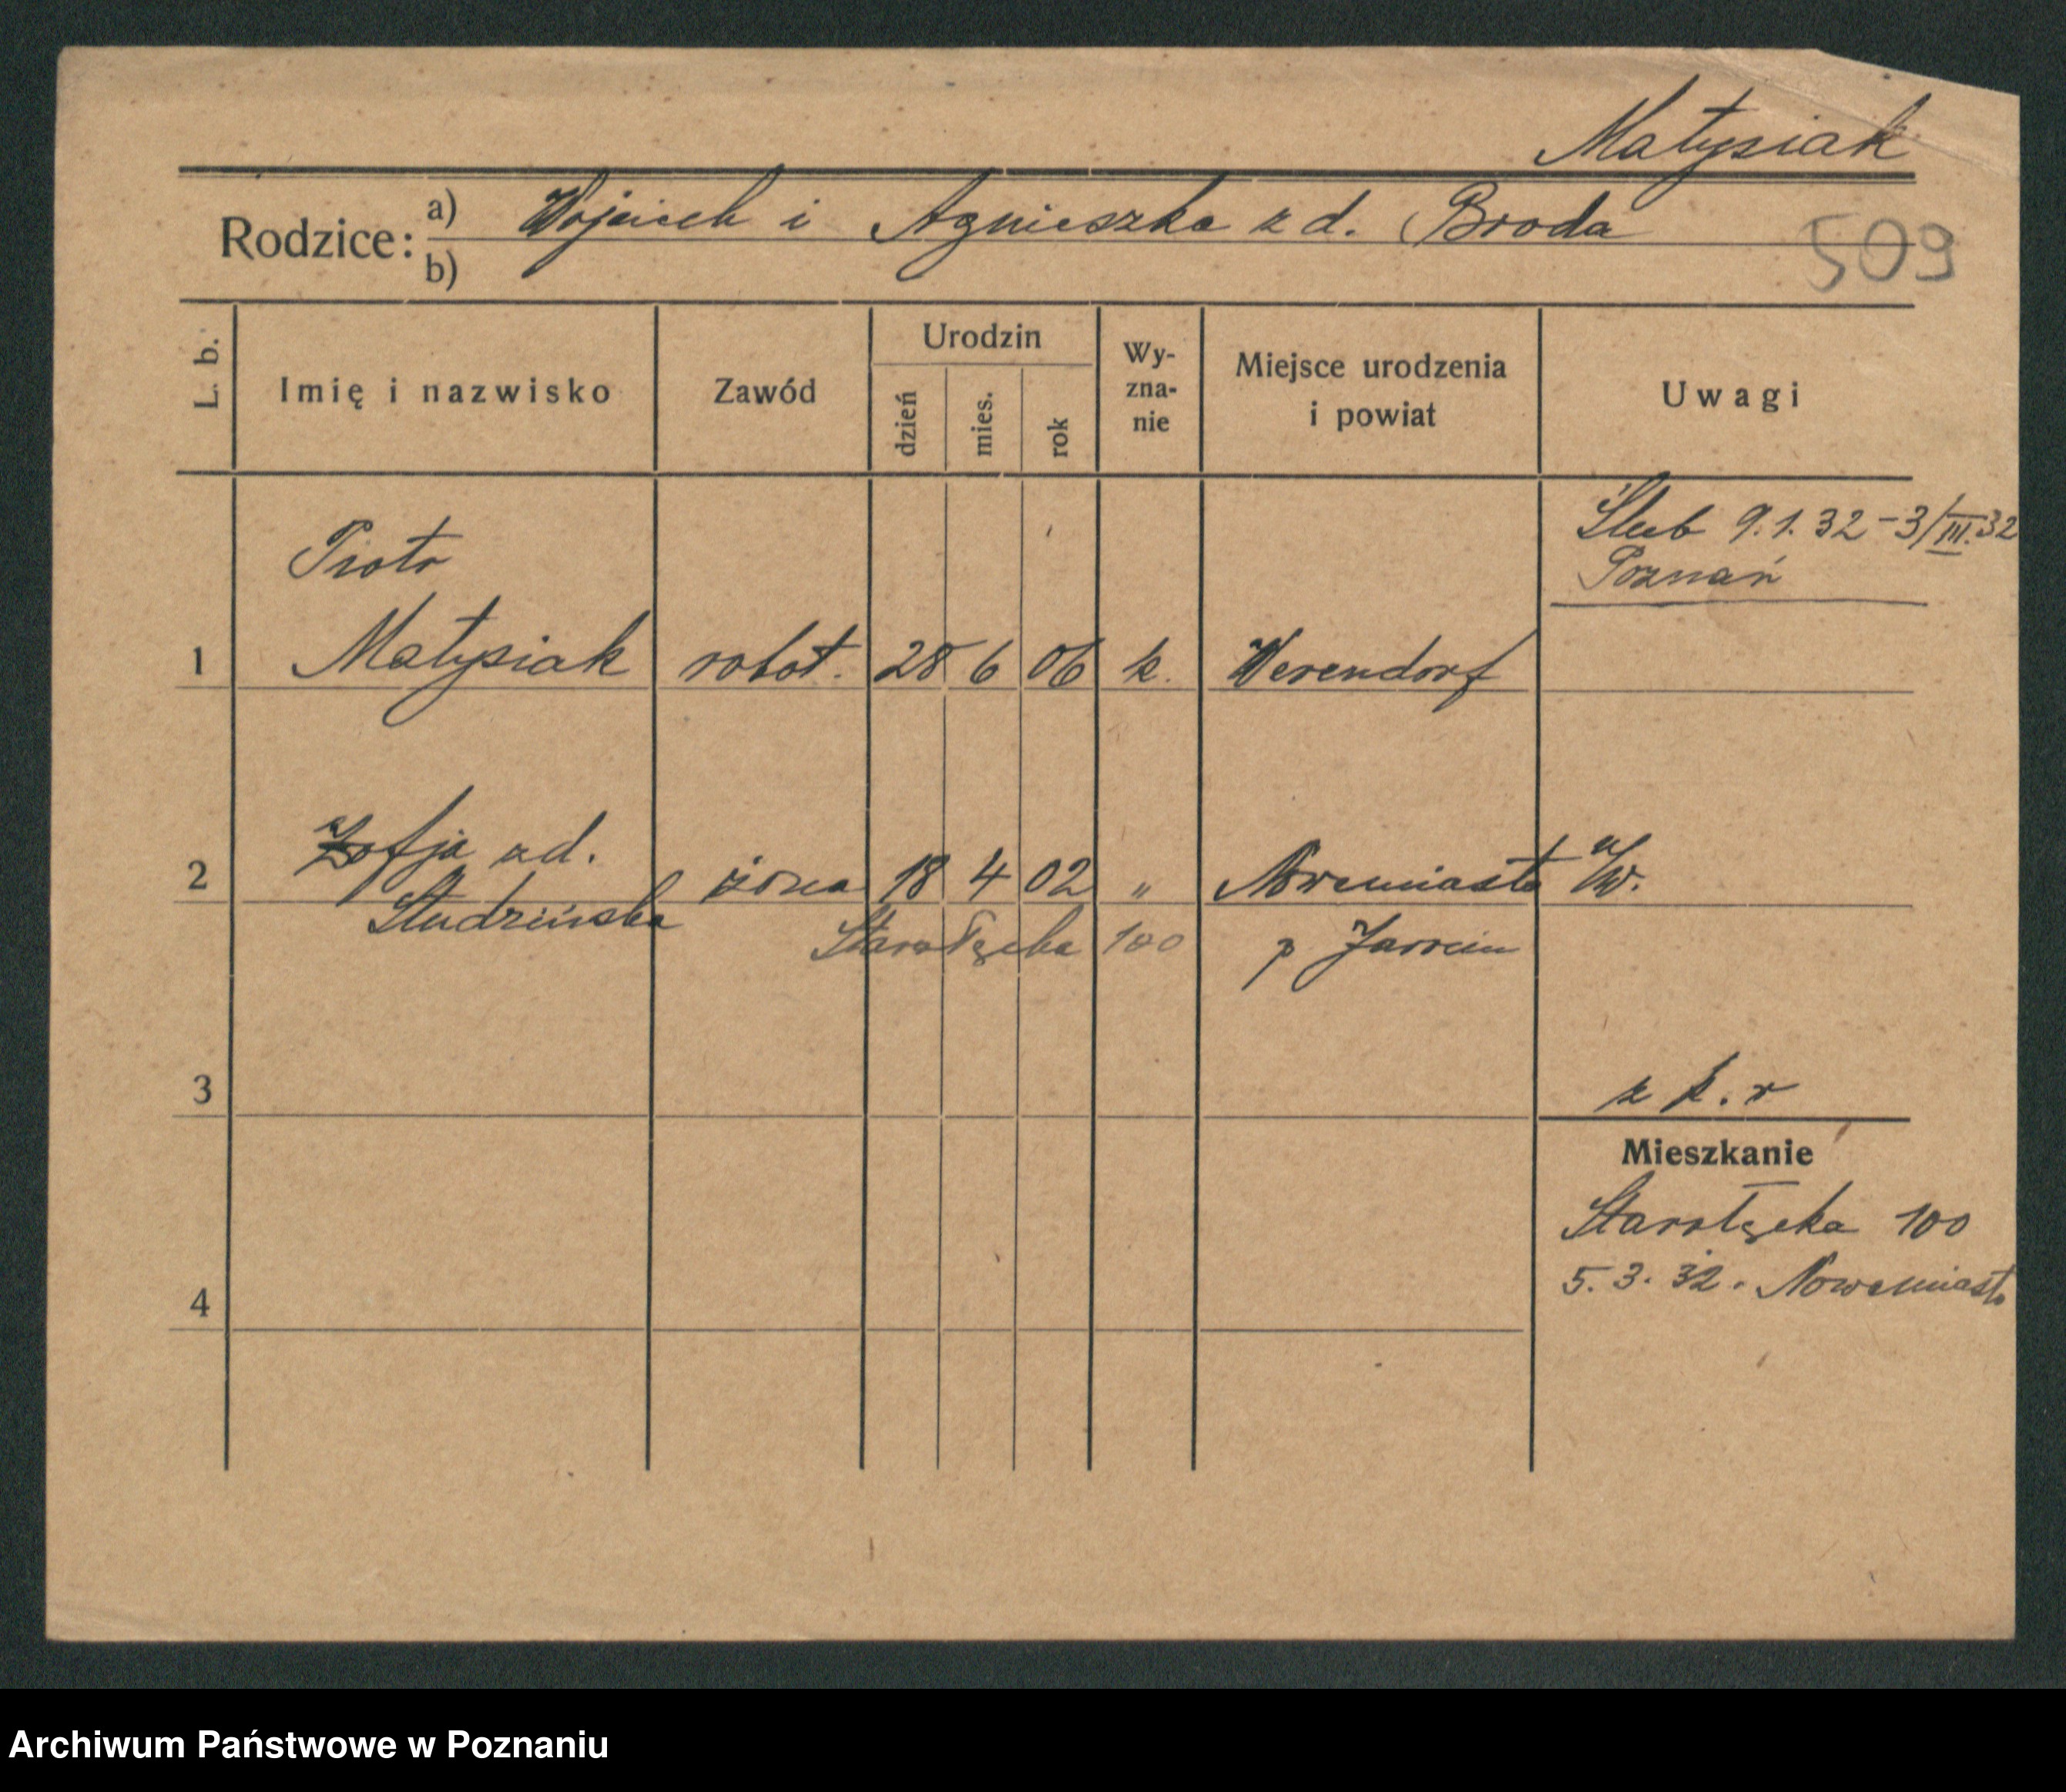 Matysiak
Rodzice: a) Wojciech i Agnieszka z d. Broda
b)
509
L. b.
Imię i nazwisko
Zawód
Urodzin
dzień
mies.
rok
Wy-
zna-
nie
Miejsce urodzenia
i powiat
Uwagi
Ślub 9.1.32 - 3/III.32
Poznań
Piotr
1 Matysiak robot. 28 6 06 k. Werendorf
Zofja zd.
2 żona 18 4 02 " Nowemiasto
Studzińska Starołęcka 100 p Jarocin
3
z k. r
Mieszkanie
Starołęcka 100
4
5. 3. 32. Nowemiasto
Archiwum Państwowe w Poznaniu